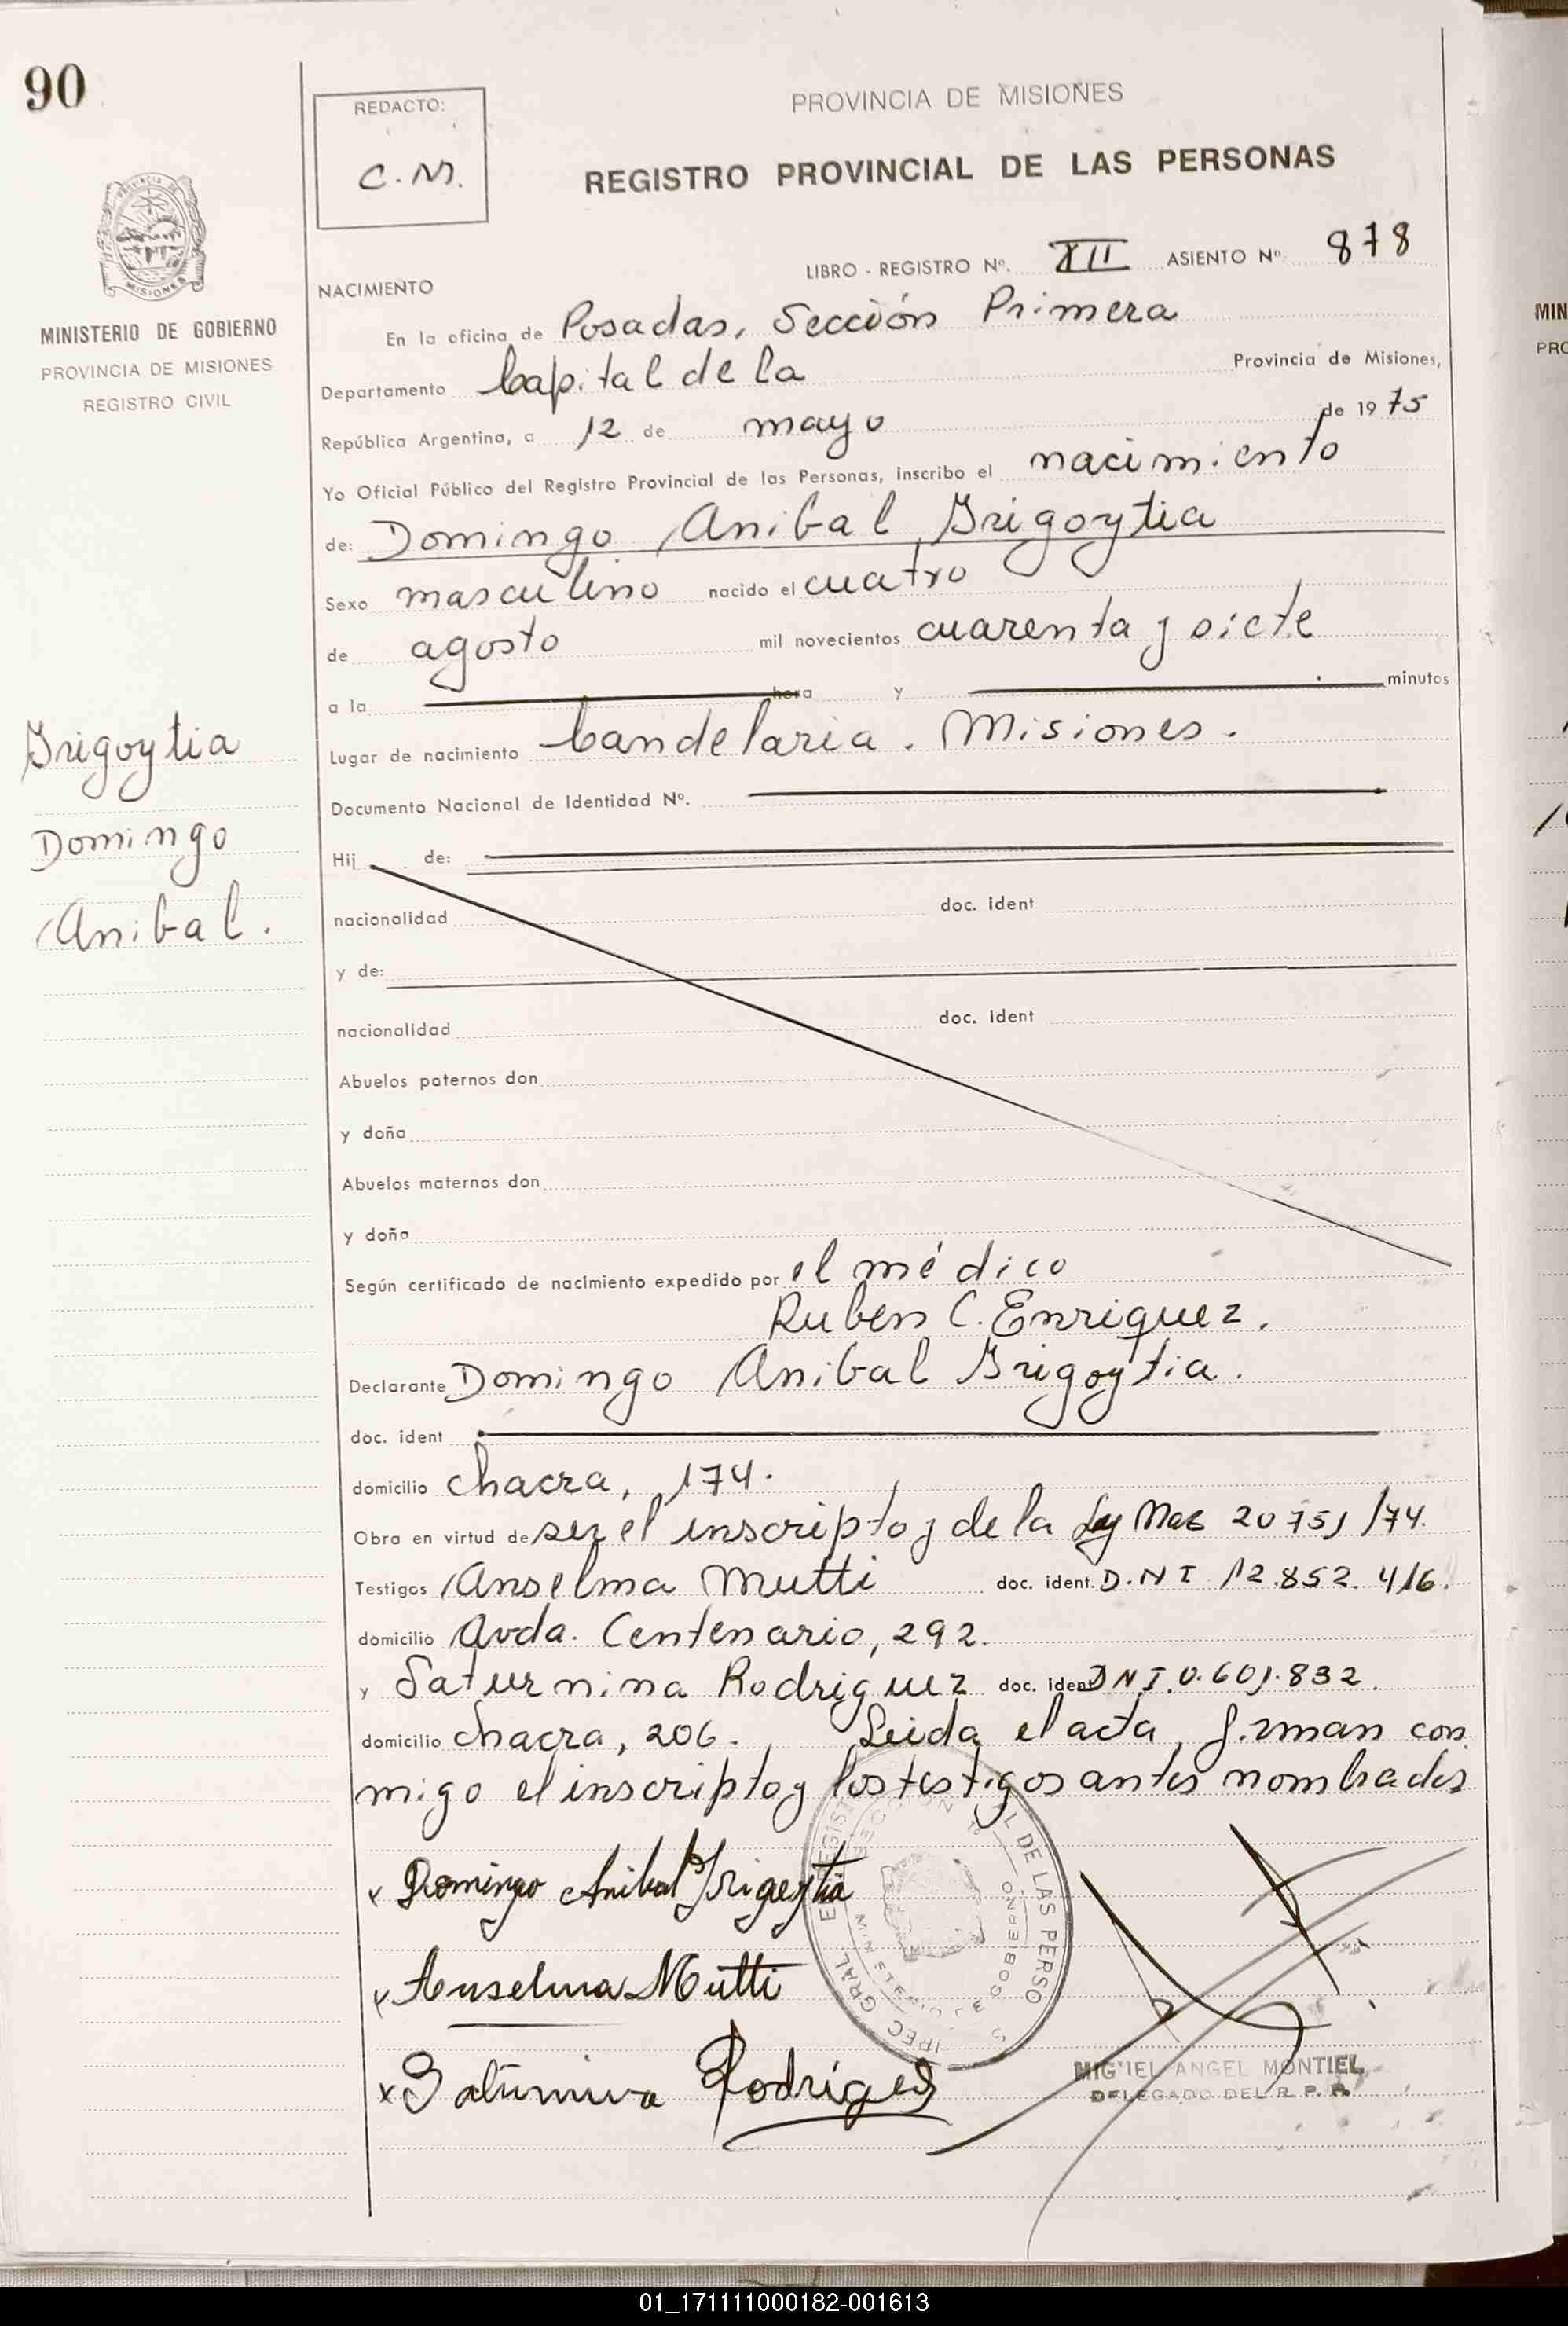 90
REDACTO:
C.M.
PROVINCIA DE MISIONES
REGISTRO PROVINCIAL DE LAS PERSONAS
MISIONES
MINISTERIO DE GOBIERNO
PROVINCIA DE MISIONES
REGISTRO CIVIL
LIBRO - REGISTRO Nº. XII ASIENTO Nº 878
NACIMIENTO
En la oficina de Posadas, Sección Primera
Departamento Capital de la Provincia de Misiones,
República Argentina, a 12 de mayo de 1975
Yo Oficial Público del Registro Provincial de las Personas, inscribo el nacimiento
de: Domingo Anibal Yrigoytia
Sexo masculino nacido el cuatro
de agosto mil novecientos cuarenta y siete
a la hora y minutos
Lugar de nacimiento Candelaria. Misiones.
Yrigoytia
Domingo
Anibal.
Documento Nacional de Identidad Nº.
Hij de:
nacionalidad doc. ident
y de:
nacionalidad doc. ident
Abuelos paternos don
y doña
Abuelos maternos don
y doña
Según certificado de nacimiento expedido por el médico
Ruben C. Enriquez.
Declarante Domingo Anibal Yrigoytia.
doc. ident
domicilio chacra, 174.
Obra en virtud de ser el inscripto y de la Ley 20751/74.
Testigos Anselma Mutti doc. ident. D.N.I 12.852.416.
domicilio Avda. Centenario, 292.
y Saturnina Rodriguez doc. ident D.N.I.
domicilio chacra, 206. Leida el acta, firman con
migo el inscripto y los testigos antes nombrados
x Domingo Anibal Yrigoytia
x Anselma Mutti
x Saturnina Rodriguez
DE LAS PERSO
GOBIERNO
MIGUEL ANGEL MONTIEL
DELEGADO DEL R. P. P.
MIN
PRO
01_171111000182-001613